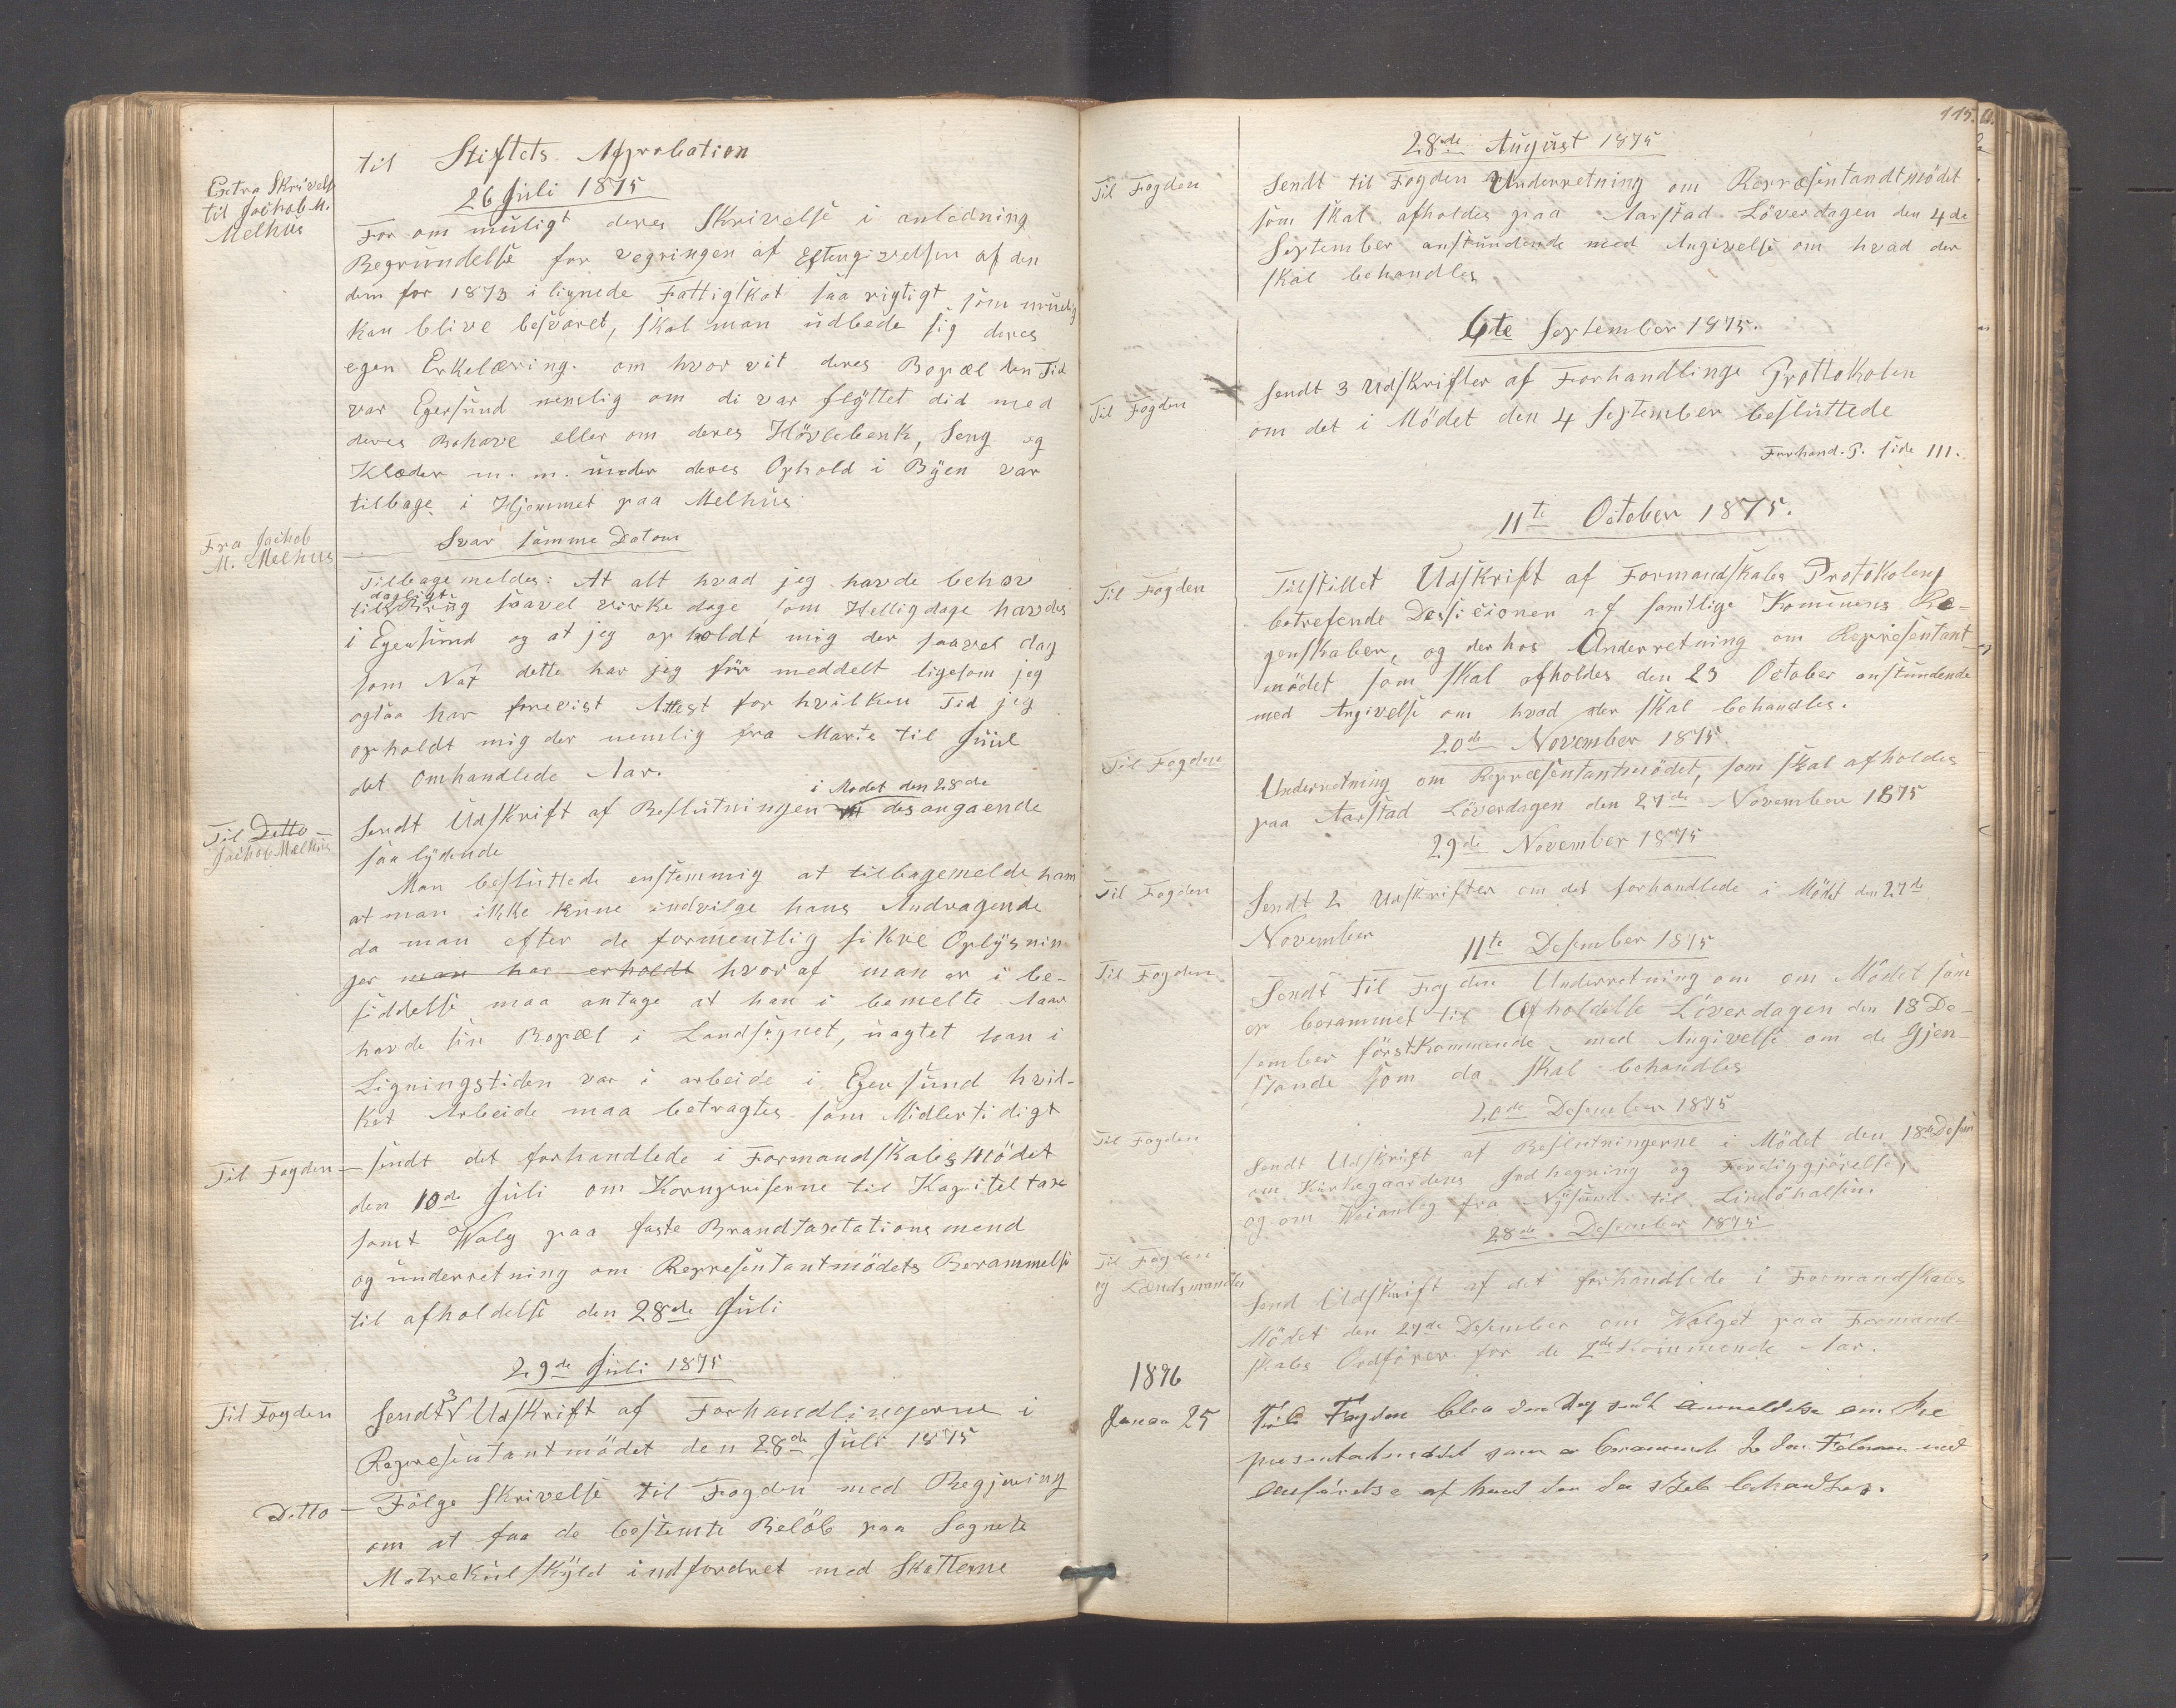 til Stiftets Approbation
Extra Skrivelse
til Jachob M.
Melhus
26 Juli 1875
For om muligt deres Skrivelse i anledning
Begrundelse for vegringen af Eftergivelsen af den
dem for 1873 ilignede Fattigskat saa rigtigt som muelig
kan blive besvaret, skal man udbede sig deres
egen Erkelæring. om hvor vit deres Bopæl den Tid
var Egersund nemlig om di var flyttet did med
deres Bohave eller om deres Hövlebenk, Seng og
Klæder m. m. under deres Ophold i Byen var
tilbage i Hjemmet paa Melhus
Fra Jachob
M. Melhus
Svar samme Datom
Tilbagemeldes: At alt hvad jeg havde behov
dagligt
til Brug saavel virkedage som Helligdage havdes
i Egersund og at jeg opholdt mig der saavel dag
som Nat dette har jeg för meddelt ligesom jeg
ogsaa har forevist Attest for hvilken Tid jeg
opholdt mig der nemlig fra Marts til Juul
det omhandlede Aar.
i Mødet den 28de
Til Ditto
Jachob Mælhus
Sendt Udskrift af Beslutningen desangaende
saa lydende
Man besluttede enstemmig at tilbagemelde ham
at man ikke kune indvilge hans Andragende
da man efter de formentlig sikre Oplysnin
ger man har erholdt hvoraf man er i be-
siddelse maa antage at han i bemelte Aar
havde sin Bopæl i Landsognet, uagtet han i
Ligningstiden var i arbeide i Egersund hvid-
ket Arbeide maa betragtes som Midlertidigt
Til Fogden — sendt det forhandlede i Formandskabsmödet
den 10de Juli om Kornpriserne til Kapiteltaxt
samt Walg paa faste Brandtaxtationsmend
og underretning om Representantmödets Berammelse
til afholdelse den 28de Juli
29de Juli 1875
Til Fogden
Sendt 3 Udskrift af Forhandlingerne i
Representantmödet den 28de Juli 1875
Ditto — Fölge Skrivelse til Fogden med Begjæring
om at faa de bestemte Belöb paa Sognets
Matrekulskyld indfordret med Skatterne
115.
28de August 1875
Til Fogden
Sendt til Fogden Underretning om Repræsentandtmödet
som skal afholdes paa Aarstad Löverdagen den 4de
September anstundende med Angivelse om hvad der
skal behandles
6te September 1875.
Til Fogden
Sendt 3 Udskrifter af Forhandlings Prottokolen
om det i Mödet den 4 September besluttede
Forhand. P. side 111.
11te October 1875.
Til Fogden
Tilstillet Udskrift af Formandskabs Protokolen
betrefende Dessicionen af samtlige Kommuens Re-
genskaber, og derhos Underretning om Representant-
mödet som skal afholdes den 23 October anstundende
med Angivelse om hvad der skal behandles.
20de November 1875.
Til Fogden
Underretning om Repræsentantmödet, som skal afholdes
paa Aarstad Löverdagen den 27de November 1875
29de November 1875
Til Fogden
Sendt 2 Udskrifter om det forhandlede i Mödet den 27de
November
11te Desember 1875
Til Fogden
Sendt til Fogden Underretning om om Mödet som
er berammet til Afholdelse Löverdagen den 18 De-
sember förstkommende, med Angivelse om de Gjen-
stande som da skal behandles
20de Desember 1875
Til Fogden
Sendt Udskrift af Beslutningerne i Mödet den 18de Desem
om Kirkegaardens Indhegning og Ferdiggjörelse,
og om Weianlæg fra Nysund til Lindöhalsen.
28de Desember 1875
Til Fogden
og Lændsmanden
Send Udskrift af det forhandlede i Formandskabs
Mödet den 27de Desember om Walget paa Formand-
skabs Ordförer for de 2de Kommende Aar.
1876
Januar 25
Til Fogden blev den Dag sendt Anmeldelse om Re
presentatmödet som er berammet den Februar med
Anförelse af hvad der da skal behandles.